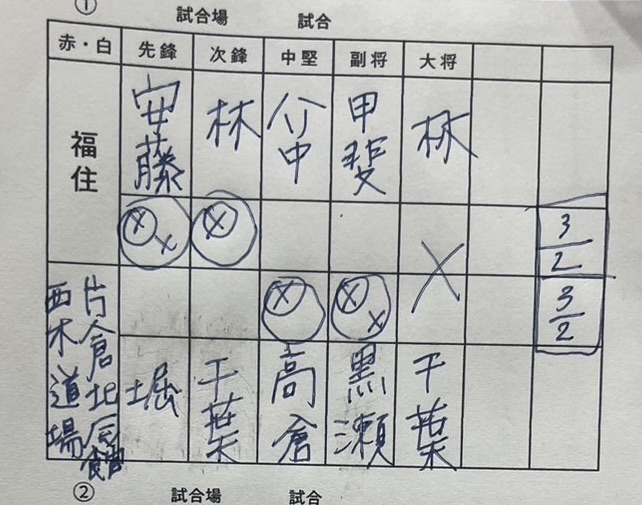 ① 試合場 試合
赤・白 先鋒 次鋒 中堅 副将 大将
福住 安藤 林 竹中 甲斐 林
×× × 3/2
× ×× × 3/2
片倉北辰館
西木道場
堀 千葉 高倉 黒瀬 千葉
② 試合場 試合